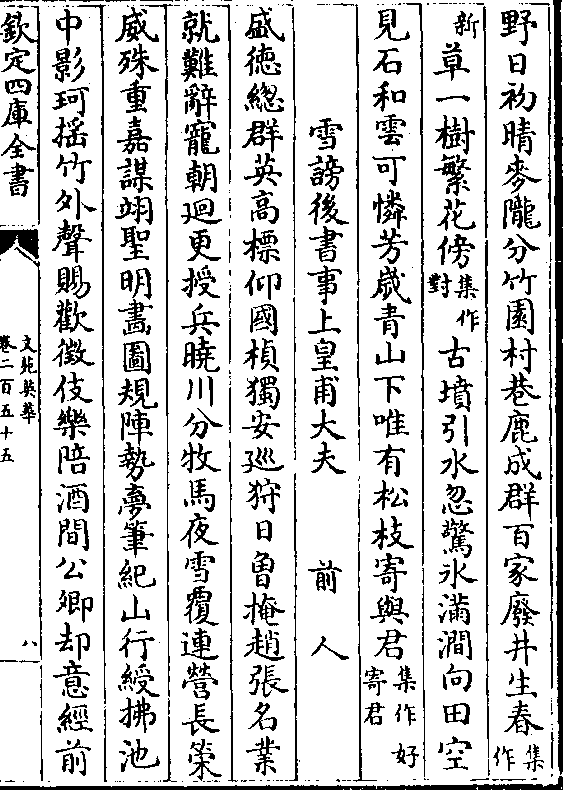 野日初晴麥隴分竹園村巷鹿成群百家廢井生春集作
新草一樹繁花傍集作對古墳引水忽驚氷滿澗向田空
見石和雲可憐芳歳青山下唯有松枝寄與君集作好寄君
雪謗後書事上皇甫大夫 前人
盛徳緫群英高標仰國楨獨安巡狩日曾掩趙張名業
就難辭寵朝廻更授兵曉川分牧馬夜雪覆連營長榮
威殊重嘉謀翊聖明畫圖規陣勢夢筆紀山行綬拂池
中影珂揺竹外聲賜歡徵伎樂陪酒問公卿却意經前
欽定四庫全書
文苑英華
卷二百五十五
八